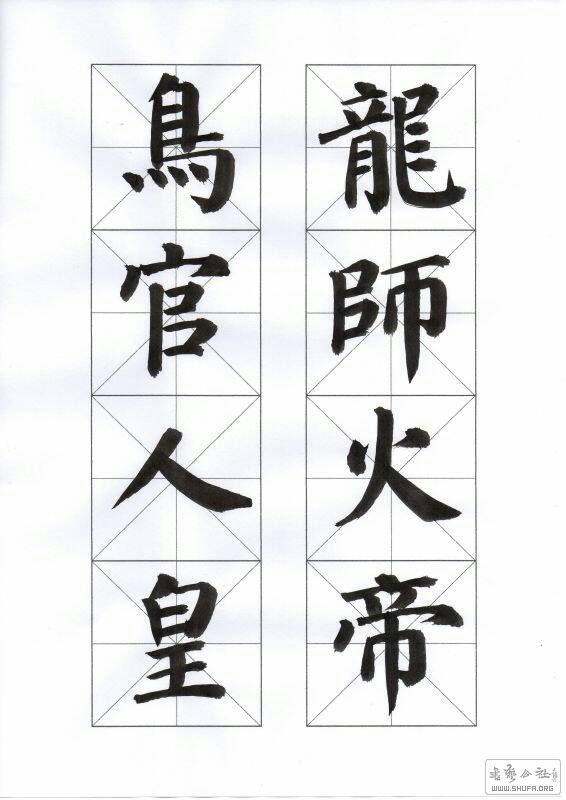 龍師火帝
鳥官人皇
WWW.SHUFA.ORG